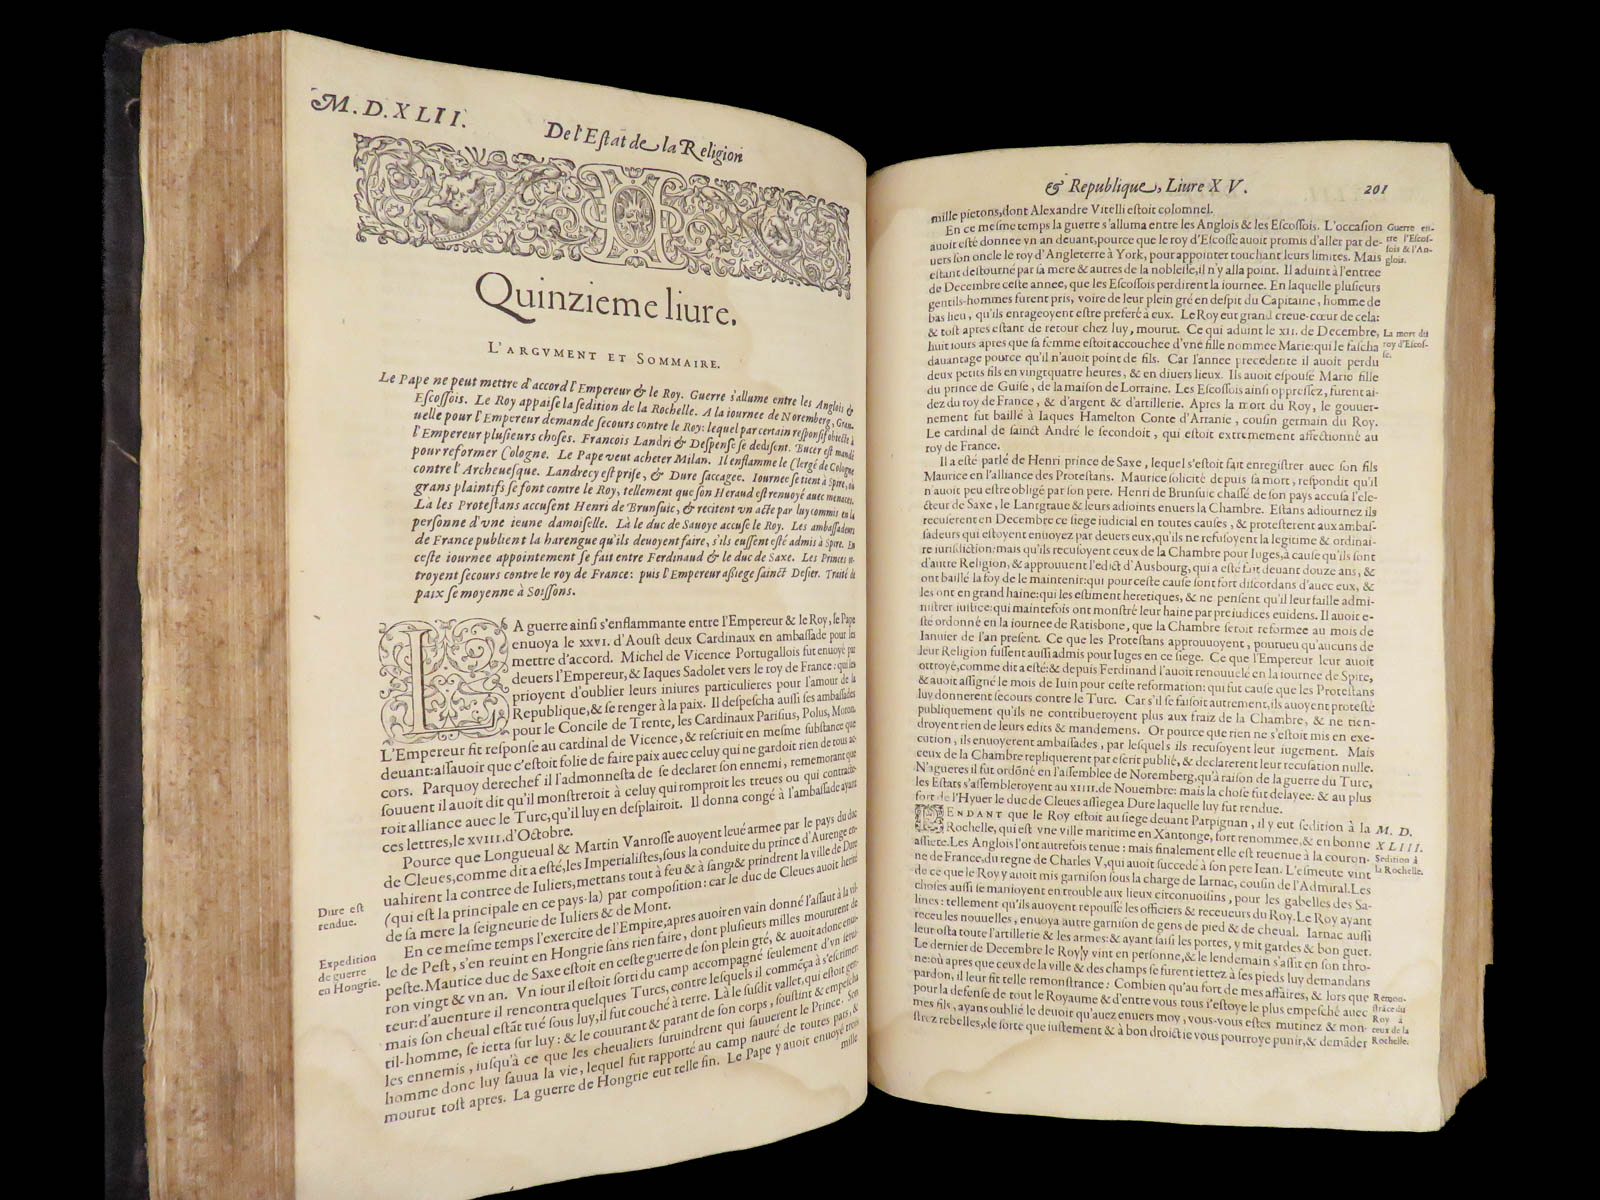 M. D. XLII.
De l'Eſtat de la Religion
Quinzieme liure.
L'ARGVMENT ET SOMMAIRE.
Le Pape ne peut mettre d'accord l'Empereur & le Roy. Guerre s'allume entre les Anglois &
Eſcoſſois. Le Roy appaiſe la ſedition de la Rochelle. A la iournee de Noremberg, Gran-
uelle pour l'Empereur demande ſecours contre le Roy: lequel par certain reſponſif obiecte à
l'Empereur pluſieurs choſes. Francois Landri & Deſpenſe ſe dediſent. Bucer eſt mandé
pour reformer Cologne. Le Pape veut acheter Milan. Il enflamme le Clergé de Cologne
contre l'Archeueſque. Landrecy eſt priſe, & Dure ſaccagee. Iournee ſe tient à Spire, où
grans plaintifs ſe font contre le Roy, tellement que ſon Heraud eſt renuoyé auec menaces.
Là les Proteſtans accuſent Henri de Brunſuic, & recitent vn acte par luy commis en la
perſonne d'vne ieune damoiſelle. Là le duc de Sauoye accuſe le Roy. Les ambaſſadeurs
de France publient la harengue qu'ils deuoyent faire, s'ils euſſent eſté admis à Spire. En
ceſte iournee appointement ſe fait entre Ferdinand & le duc de Saxe. Les Princes ot-
troyent ſecours contre le roy de France: puis l'Empereur aſſiege ſainct Deſier. Traité de
paix ſe moyenne à Soiſſons.
LA guerre ainſi s'enflammante entre l'Empereur & le Roy, le Pape
enuoya le XXVI. d'Aouſt deux Cardinaux en ambaſſade pour les
mettre d'accord. Michel de Vicence Portugallois fut enuoyé par
deuers l'Empereur, & Iaques Sadolet vers le roy de France: qui les
prioyent d'oublier leurs iniures particulieres pour l'amour de la
Republique, & ſe renger à la paix. Il deſpeſcha auſſi ſes ambaſſades
pour le Concile de Trente, les Cardinaux Pariſius, Polus, Moron.
L'Empereur fit reſponſe au cardinal de Vicence, & reſcriuit en meſme ſubſtance que
deuant: aſſauoir que c'eſtoit folie de faire paix auec celuy qui ne gardoit rien de tous ac-
cors. Parquoy derechef il l'admonneſta de ſe declarer ſon ennemi, rememorant que
ſouuent il auoit dit qu'il monſtreroit à celuy qui romproit les treues ou qui contracte-
roit alliance auec le Turc, qu'il luy en deſplairoit. Il donna congé à l'ambaſſade ayant
ces lettres, le XVIII. d'Octobre.
Pource que Longueual & Martin Vanroſſe auoyent leué armee par le pays du duc
de Cleues, comme dit a eſté, les Imperialiſtes, ſous la conduite du prince d'Aurenge en-
uahirent la contree de Iuliers, mettans tout à feu & à ſang: & prindrent la ville de Dure
(qui eſt la principale en ce pays-la) par compoſition: car le duc de Cleues auoit herité
de ſa mere la ſeigneurie de Iuliers & de Mont.
Dure eſt
rendue.
En ce meſme temps l'exercite de l'Empire, apres auoir en vain donné l'aſſaut à la vil-
le de Peſt, s'en reuint en Hongrie ſans rien faire, dont pluſieurs milles moururent de
peſte. Maurice duc de Saxe eſtoit en ceſte guerre de ſon plein gré, & auoit adonc enui-
ron vingt & vn an. Vn iour il eſtoit ſorti du camp accompagné ſeulement d'vn ſerui-
teur: d'auenture il rencontra quelques Turcs, contre leſquels il commēça à s'eſcrimer:
mais ſon cheual eſtāt tué ſous luy, il fut couché à terre. Là le ſuſdit vallet, qui eſtoit gen-
til-homme, ſe ietta ſur luy: & le couurant & parant de ſon corps, ſouſtint & empeſcha
les ennemis, iuſqu'à ce que les cheualiers ſuruindrent qui ſauuerent le Prince. Son
homme donc luy ſauua la vie, lequel fut rapporté au camp nauré de toutes pars, &
mourut toſt apres. La guerre de Hongrie eut telle fin. Le Pape y auoit enuoyé trois
mille
Expedition
de guerre
en Hongrie.
& Republique, Liure XV.
201
mille pietons, dont Alexandre Vitelli eſtoit colomnel.
En ce meſme temps la guerre s'alluma entre les Anglois & les Eſcoſſois. L'occaſion
auoit eſté donnee vn an deuant, pource que le roy d'Eſcoſſe auoit promis d'aller par de-
uers ſon oncle le roy d'Angleterre à York, pour appointer touchant leurs limites. Mais
eſtant deſtourné par ſa mere & autres de la nobleſſe, il n'y alla point. Il aduint à l'entree
de Decembre ceſte annee, que les Eſcoſſois perdirent la iournee. En laquelle pluſieurs
gentils-hommes furent pris, voire de leur plein gré en deſpit du Capitaine, homme de
bas lieu, qu'ils enrageoyent eſtre preferé à eux. Le Roy eut grand creue-cœur de cela:
& toſt apres eſtant de retour chez luy, mourut. Ce qui aduint le XII. de Decembre,
huit iours apres que ſa femme eſtoit accouchee d'vne fille nommee Marie: qui le faſcha
dauantage pource qu'il n'auoit point de fils. Car l'annee precedente il auoit perdu
deux petits fils en vingtquatre heures, & en diuers lieux. Ils auoit eſpouſé Marie fille
du prince de Guiſe, de la maiſon de Lorraine. Les Eſcoſſois ainſi oppreſſez, furent ai-
dez du roy de France, & d'argent & d'artillerie. Apres la mort du Roy, le gouuer-
nement fut baillé à Iaques Hamelton Conte d'Arranie, couſin germain du Roy.
Le cardinal de ſainct André le ſecondoit, qui eſtoit extremement affectionné au
roy de France.
Guerre en-
tre l'Eſcoſ-
ſois & l'An-
glois.
La mort du
roy d'Eſcoſ-
ſe.
Il a eſté parlé de Henri prince de Saxe, lequel s'eſtoit fait enregiſtrer auec ſon fils
Maurice en l'alliance des Proteſtans. Maurice ſolicité depuis ſa mort, reſpondit qu'il
n'auoit peu eſtre obligé par ſon pere. Henri de Brunſuic chaſſé de ſon pays accuſa l'ele-
cteur de Saxe, le Lantgraue & leurs adioints enuers la Chambre. Eſtans adiournez ils
recuſerent en Decembre ce ſiege iudicial en toutes cauſes, & proteſterent aux ambaſ-
ſadeurs qui eſtoyent enuoyez par deuers eux, qu'ils ne refuſoyent la legitime & ordinai-
re iuriſdiction: mais qu'ils recuſoyent ceux de la Chambre pour Iuges, à cauſe qu'ils ſont
d'autre Religion, & approuuent l'edict d'Auſbourg, qui a eſté fait deuant douze ans, &
ont baillé la foy de le maintenir: qui pour ceſte cauſe ſont fort diſcordans d'auec eux, &
les ont en grand haine: qui les eſtiment heretiques, & ne penſent qu'il leur faille admi-
niſtrer iuſtice: qui maintefois ont monſtré leur haine par preiudices euidens. Il auoit e-
ſté ordonné en la iournee de Ratisbone, que la Chambre ſeroit reformee au mois de
Ianuier de l'an preſent. Ce que les Proteſtans approuuoyent, pourueu qu'aucuns de
leur Religion fuſſent auſſi admis pour Iuges en ce ſiege. Ce que l'Empereur leur auoit
ottroyé, comme dit a eſté: & depuis Ferdinand l'auoit renouuelé en la iournee de Spire,
& auoit aſſigné le mois de Iuin pour ceſte reformation: qui fut cauſe que les Proteſtans
luy donnerent ſecours contre le Turc. Car s'il ſe faiſoit autrement, ils auoyent proteſté
publiquement qu'ils ne contribueroyent plus aux fraiz de la Chambre, & ne tien-
droyent rien de leurs edits & mandemens. Or pource que rien ne s'eſtoit mis en exe-
cution, ils enuoyerent ambaſſades, par leſquels ils recuſoyent leur iugement. Mais
ceux de la Chambre repliquerent par eſcrit publié, & declarerent leur recuſation nulle.
N'agueres il fut ordōné en l'aſſemblee de Noremberg, qu'à raiſon de la guerre du Turc,
les Eſtats s'aſſembleroyent au XIIII. de Nouembre: mais la choſe fut delayee: & au plus
fort de l'Hyuer le duc de Cleues aſſiegea Dure laquelle luy fut rendue.
PENDANT que le Roy eſtoit au ſiege deuant Parpignan, il y eut ſedition à la
Rochelle, qui eſt vne ville maritime en Xantonge, fort renommee, & en bonne
aſſiete. Les Anglois l'ont autrefois tenue: mais finalement elle eſt reuenue à la couron-
ne de France, du regne de Charles V, qui auoit ſuccedé à ſon pere Iean. L'eſmeute vint
de ce que le Roy y auoit mis garniſon ſous la charge de Iarnac, couſin de l'Admiral. Les
choſes auſſi ſe manioyent en trouble aux lieux circonuoiſins, pour les gabelles des Sa-
lines: tellement qu'ils auoyent repouſſé les officiers & receueurs du Roy. Le Roy ayant
receu les nouuelles, enuoya autre garniſon de gens de pied & de cheual. Iarnac auſſi
leur oſta toute l'artillerie & les armes: & ayant ſaiſi les portes, y mit gardes & bon guet.
Le dernier de Decembre le Roy y vint en perſonne, & le lendemain s'aſſit en ſon thro-
ne: où apres que ceux de la ville & des champs ſe furent iettez à ſes pieds luy demandans
pardon, il leur fit telle remonſtrance: Combien qu'au fort de mes affaires, & lors que
pour la defenſe de tout le Royaume & d'entre vous tous i'eſtoye le plus empeſché auec
mes fils, ayans oublié le deuoir qu'auez enuers moy, vous-vous eſtes mutinez & mon-
ſtrez rebelles, de ſorte que iuſtement & à bon droict ie vous pourroye punir, & demāder
M. D.
XLIII.
Sedition à
la Rochelle.
Remon-
ſtrāce du
Roy à
ceux de la
Rochelle.